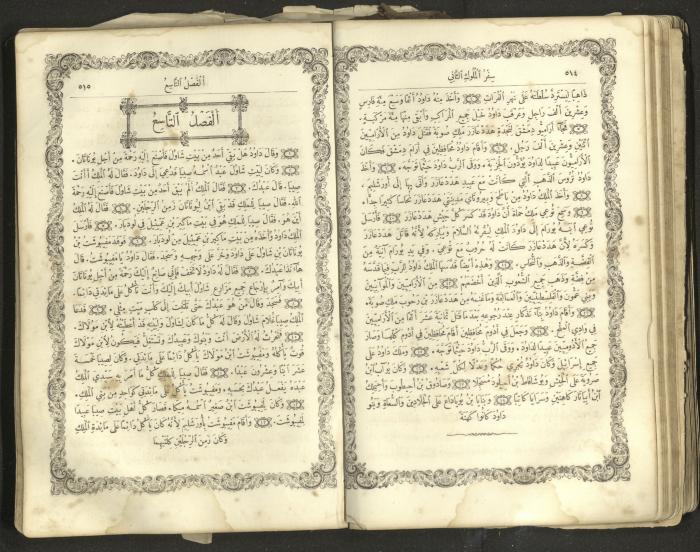 ٥١٤
سِفْرُ ٱلْمُلُوكِ ٱلثَّانِي
ذَاهِبًا لِيَسْتَرِدَّ سُلْطَتَهُ عَلَى نَهْرِ ٱلْفُرَاتِ وَأَخَذَ مِنْهُ دَاوُدُ أَلْفًا وَسَبْعَ مِئَةِ فَارِسٍ
وَعِشْرِينَ أَلْفَ رَاجِلٍ وَعَرْقَبَ دَاوُدُ خَيْلَ جَمِيعِ ٱلْمَرَاكِبِ وَأَبْقَى مِنْهَا مِئَةَ مَرْكَبَةٍ.
فَجَاءَ أَرَامِيُّو دِمَشْقَ لِنَجْدَةِ هَدَدَعَازَرَ مَلِكِ صُوبَةَ فَقَتَلَ دَاوُدُ مِنَ ٱلْأَرَامِيِّينَ
ٱثْنَيْنِ وَعِشْرِينَ أَلْفَ رَجُلٍ. وَأَقَامَ دَاوُدُ مُحَافِظِينَ فِي أَرَامِ دِمَشْقَ فَكَانَ
ٱلْأَرَامِيُّونَ عَبِيدًا لِدَاوُدَ يُؤَدُّونَ ٱلْجِزْيَةَ. وَوَقَى ٱلرَّبُّ دَاوُدَ حَيْثُمَا تَوَجَّهَ. وَأَخَذَ
دَاوُدُ تُرُوسَ ٱلذَّهَبِ ٱلَّتِي كَانَتْ مَعَ عَبِيدِ هَدَدَعَازَرَ وَأَتَى بِهَا إِلَى أُورَشَلِيمَ.
وَأَخَذَ ٱلْمَلِكُ دَاوُدُ مِنْ بَاطَحَ وَبِيرُوتَايَ مَدِينَتَيْ هَدَدَعَازَرَ نُحَاسًا كَثِيرًا جِدًّا.
وَسَمِعَ تُوعِي مَلِكُ حَمَاةَ أَنَّ دَاوُدَ قَدْ كَسَرَ كُلَّ جَيْشِ هَدَدَعَازَرَ فَأَرْسَلَ
تُوعِي ٱبْنَهُ يُورَامَ إِلَى دَاوُدَ ٱلْمَلِكِ لِيُقْرِئَهُ ٱلسَّلَامَ وَيُبَارِكَهُ لِأَنَّهُ قَاتَلَ هَدَدَعَازَرَ
وَكَسَرَهُ لِأَنَّ هَدَدَعَازَرَ كَانَتْ لَهُ حُرُوبٌ مَعَ تُوعِي. وَفِي يَدِ يُورَامَ آنِيَةٌ مِنَ
ٱلْفِضَّةِ وَٱلذَّهَبِ وَٱلنُّحَاسِ. وَهٰذِهِ أَيْضًا قَدَّسَهَا ٱلْمَلِكُ دَاوُدُ لِلرَّبِّ فِيمَا قَدَّسَهُ
مِنْ فِضَّةٍ وَذَهَبِ جَمِيعِ ٱلشُّعُوبِ ٱلَّذِينَ أَخْضَعَهُمْ مِنَ ٱلْأَرَامِيِّينَ وَٱلْمُوآبِيِّينَ
وَبَنِي عَمُّونَ وَٱلْفَلَسْطِينِيِّينَ وَٱلْعَمَالِقَةِ وَمَا قَدَّسَهُ مِنْ هَدَدَعَازَرَ بْنِ رَحُوبَ مَلِكِ صُوبَةَ.
وَأَقَامَ دَاوُدُ لَهُ تَذْكَارًا عِنْدَ رُجُوعِهِ بَعْدَ مَا قَتَلَ ثَمَانِيَةَ عَشَرَ أَلْفًا مِنَ ٱلْأَرَامِيِّينَ
فِي وَادِي ٱلْمِلْحِ. وَجَعَلَ فِي أَدُومَ مُحَافِظِينَ أَقَامَ مُحَافِظِينَ فِي أَدُومَ كُلِّهَا وَصَارَ
جَمِيعُ ٱلْأَدُومِيِّينَ عَبِيدًا لِدَاوُدَ. وَوَقَى ٱلرَّبُّ دَاوُدَ حَيْثُمَا تَوَجَّهَ. وَمَلَكَ دَاوُدُ عَلَى
جَمِيعِ إِسْرَائِيلَ وَكَانَ دَاوُدُ يُجْرِي حُكْمًا وَعَدْلًا لِكُلِّ شَعْبِهِ. وَكَانَ يُوآبُ ٱبْنُ
صَرُويَةَ عَلَى ٱلْجَيْشِ وَيُوشَافَاطُ بْنُ أَحِيلُودَ مُسَجِّلًا وَصَادُوقُ بْنُ أَحِيطُوبَ وَأَحِيمَلِكُ
ٱبْنُ أَبِيَاتَارَ كَاهِنَيْنِ وَسَرَايَا كَاتِبًا وَبَنَايَا بْنُ يُويَادَاعَ عَلَى ٱلْجَلَّادِينَ وَٱلسُّعَاةِ وَبَنُو
دَاوُدَ كَانُوا كَهَنَةً
٥١٥
ٱلْفَصْلُ ٱلتَّاسِعُ
ٱلْفَصْلُ ٱلتَّاسِعُ
وَقَالَ دَاوُدُ هَلْ بَقِيَ أَحَدٌ مِنْ بَيْتِ شَاوُلَ فَأَصْنَعَ إِلَيْهِ رَحْمَةً مِنْ أَجْلِ يُونَاتَانَ.
وَكَانَ لِبَيْتِ شَاوُلَ عَبْدٌ ٱسْمُهُ صِيبَا فَدُعِيَ إِلَى دَاوُدَ. فَقَالَ لَهُ ٱلْمَلِكُ أَأَنْتَ
صِيبَا. قَالَ عَبْدُكَ. فَقَالَ ٱلْمَلِكُ أَلَمْ يَبْقَ أَحَدٌ مِنْ بَيْتِ شَاوُلَ فَأَصْنَعَ إِلَيْهِ رَحْمَةَ
ٱللهِ. فَقَالَ صِيبَا لِلْمَلِكِ قَدْ بَقِيَ ٱبْنٌ لِيُونَاتَانَ زَمِنُ ٱلرِّجْلَيْنِ. فَقَالَ لَهُ ٱلْمَلِكُ
أَيْنَ هُوَ. فَقَالَ صِيبَا لِلْمَلِكِ هُوَ فِي بَيْتِ مَاكِيرَ بْنِ عَمِّيئِيلَ فِي لُودَبَارَ. فَأَرْسَلَ
ٱلْمَلِكُ دَاوُدُ وَأَخَذَهُ مِنْ بَيْتِ مَاكِيرَ بْنِ عَمِّيئِيلَ مِنْ لُودَبَارَ. فَوَفَدَ مَفِيبُوشَتُ بْنُ
يُونَاتَانَ بْنِ شَاوُلَ عَلَى دَاوُدَ وَخَرَّ عَلَى وَجْهِهِ وَسَجَدَ. فَقَالَ دَاوُدُ يَا مَفِيبُوشَتُ. قَالَ
هَاءَنَذَا عَبْدُكَ. فَقَالَ لَهُ دَاوُدُ لَا تَخَفْ فَإِنِّي صَانِعٌ إِلَيْكَ رَحْمَةً مِنْ أَجْلِ يُونَاتَانَ
أَبِيكَ وَآمُرُ بِإِرْجَاعِ جَمِيعِ مَزَارِعِ شَاوُلَ أَبِيكَ إِلَيْكَ وَأَنْتَ تَأْكُلُ عَلَى مَائِدَتِي دَائِمًا.
فَسَجَدَ وَقَالَ مَنْ هُوَ عَبْدُكَ حَتَّى تَلْتَفِتَ إِلَى كَلْبٍ مَيِّتٍ مِثْلِي. فَدَعَا
ٱلْمَلِكُ صِيبَا غُلَامَ شَاوُلَ وَقَالَ لَهُ كُلُّ مَا كَانَ لِشَاوُلَ وَلِبَيْتِهِ قَدْ أَعْطَيْتُهُ لِٱبْنِ مَوْلَاكَ.
فَتَحْرُثُ لَهُ ٱلْأَرْضَ أَنْتَ وَبَنُوكَ وَعَبِيدُكَ وَتَسْتَغِلُّ فَيَكُونُ لِٱبْنِ مَوْلَاكَ
قُوتٌ يَأْكُلُهُ وَمَفِيبُوشَتُ ٱبْنُ مَوْلَاكَ يَأْكُلُ دَائِمًا عَلَى مَائِدَتِي. وَكَانَ لِصِيبَا خَمْسَةَ
عَشَرَ ٱبْنًا وَعِشْرُونَ عَبْدًا. فَقَالَ صِيبَا لِلْمَلِكِ كُلُّ مَا أَمَرَ بِهِ سَيِّدِي ٱلْمَلِكُ
عَبْدَهُ يَفْعَلُ عَبْدُكَ بِحَسَبِهِ. وَمَفِيبُوشَتُ يَأْكُلُ عَلَى مَائِدَتِي كَوَاحِدٍ مِنْ بَنِي ٱلْمَلِكِ.
وَكَانَ لِمَفِيبُوشَتَ ٱبْنٌ صَغِيرٌ ٱسْمُهُ مِيكَا. فَصَارَ كُلُّ أَهْلِ بَيْتِ صِيبَا عَبِيدًا
لِمَفِيبُوشَتَ. وَأَقَامَ مَفِيبُوشَتُ بِأُورَشَلِيمَ لِأَنَّهُ كَانَ يَأْكُلُ دَائِمًا عَلَى مَائِدَةِ ٱلْمَلِكِ
وَكَانَ زَمِنَ ٱلرِّجْلَيْنِ كِلْتَيْهِمَا